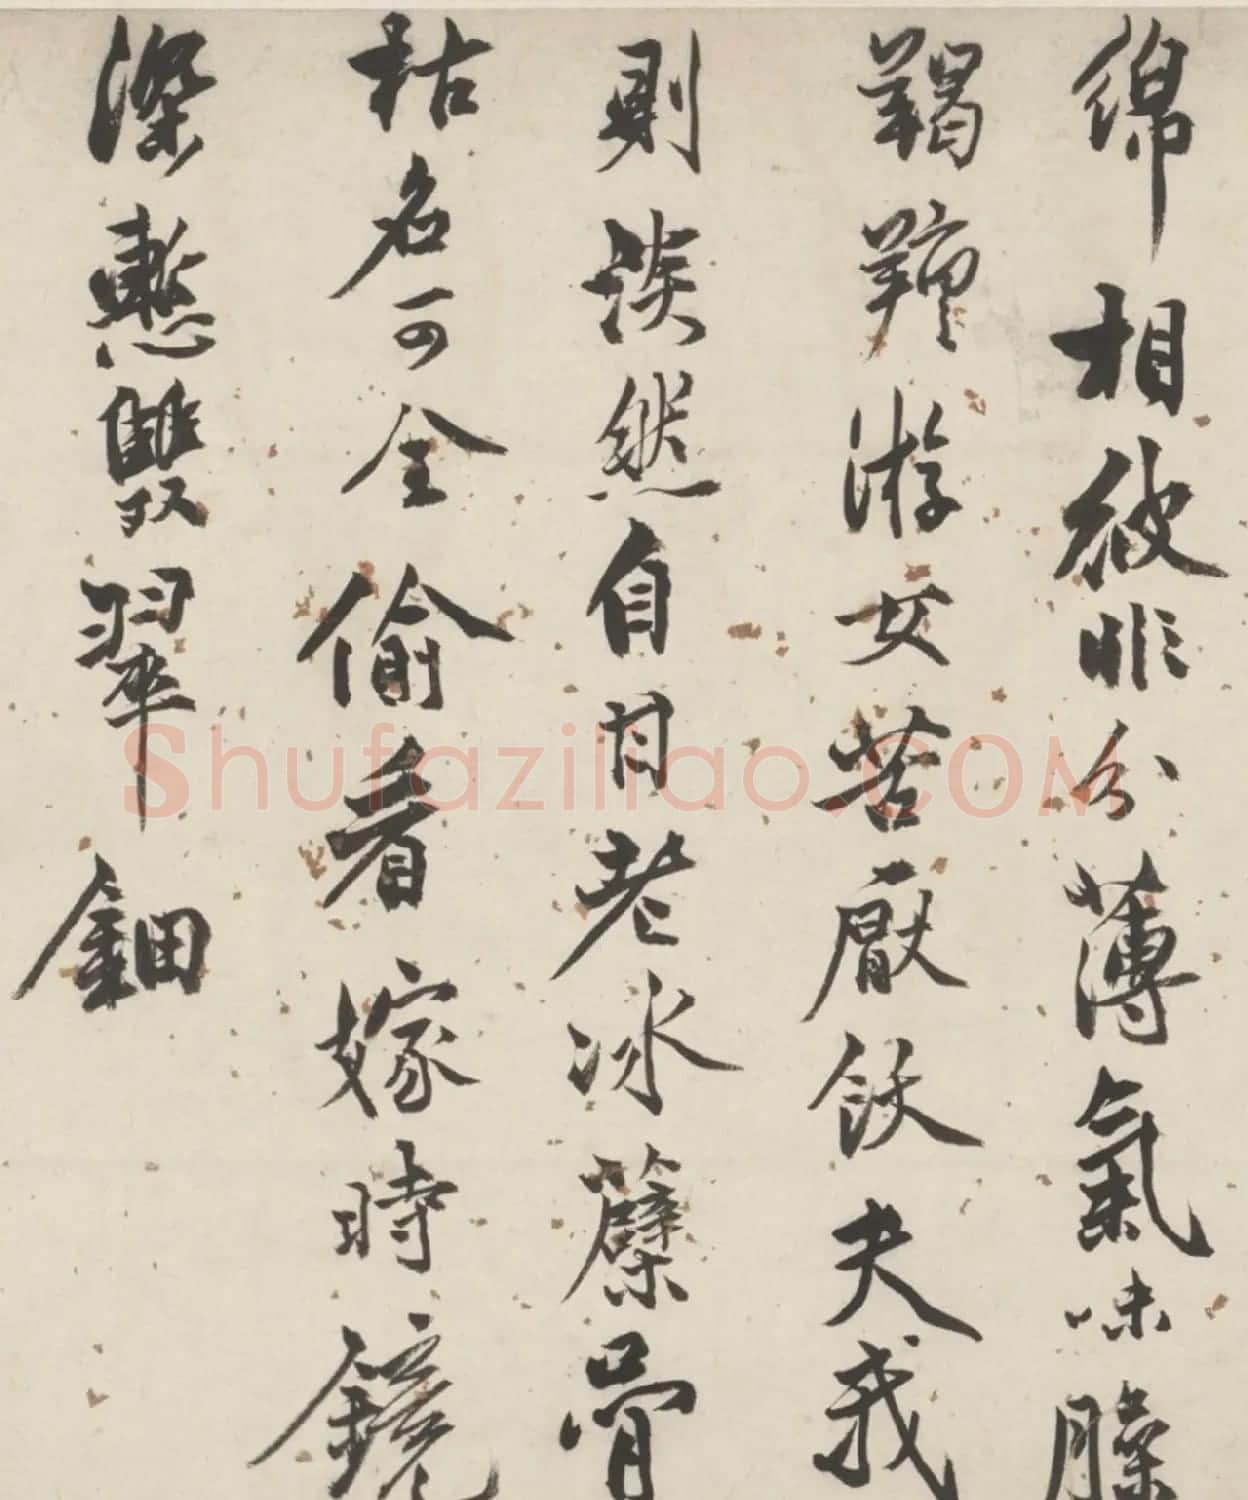 綿相彼非分薄氣味臊
羯羶游女苦厭飫夫我
則淡然自甘老冰蘗骨
枯名可全偷看嫁時鏡
深慙雙翠鈿
Shufaziliao.COM